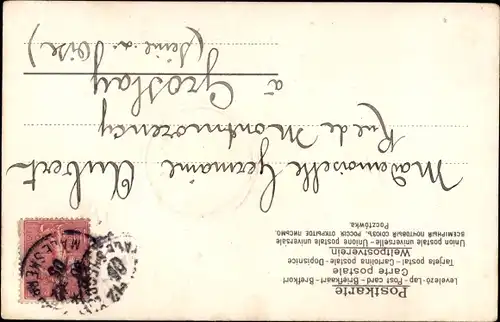 Postkarte
Levelezo-Lap - Post card - Briefkaart - Brefkort
Carte postale
Tarjeta postal - Cartolina postale - Dopisnice
Weltpostverein
Union postale universelle - Unione postale universale
ВСЕМІРНЫЙ ПОЧТОВЫЙ СОЮЗЪ. РОССІЯ. ОТКРЫТОЕ ПИСЬМО.
Pocztówka.
Mademoiselle Germaine Aubert
Rue de Montmorency
à Groslay
(Seine & Oise)